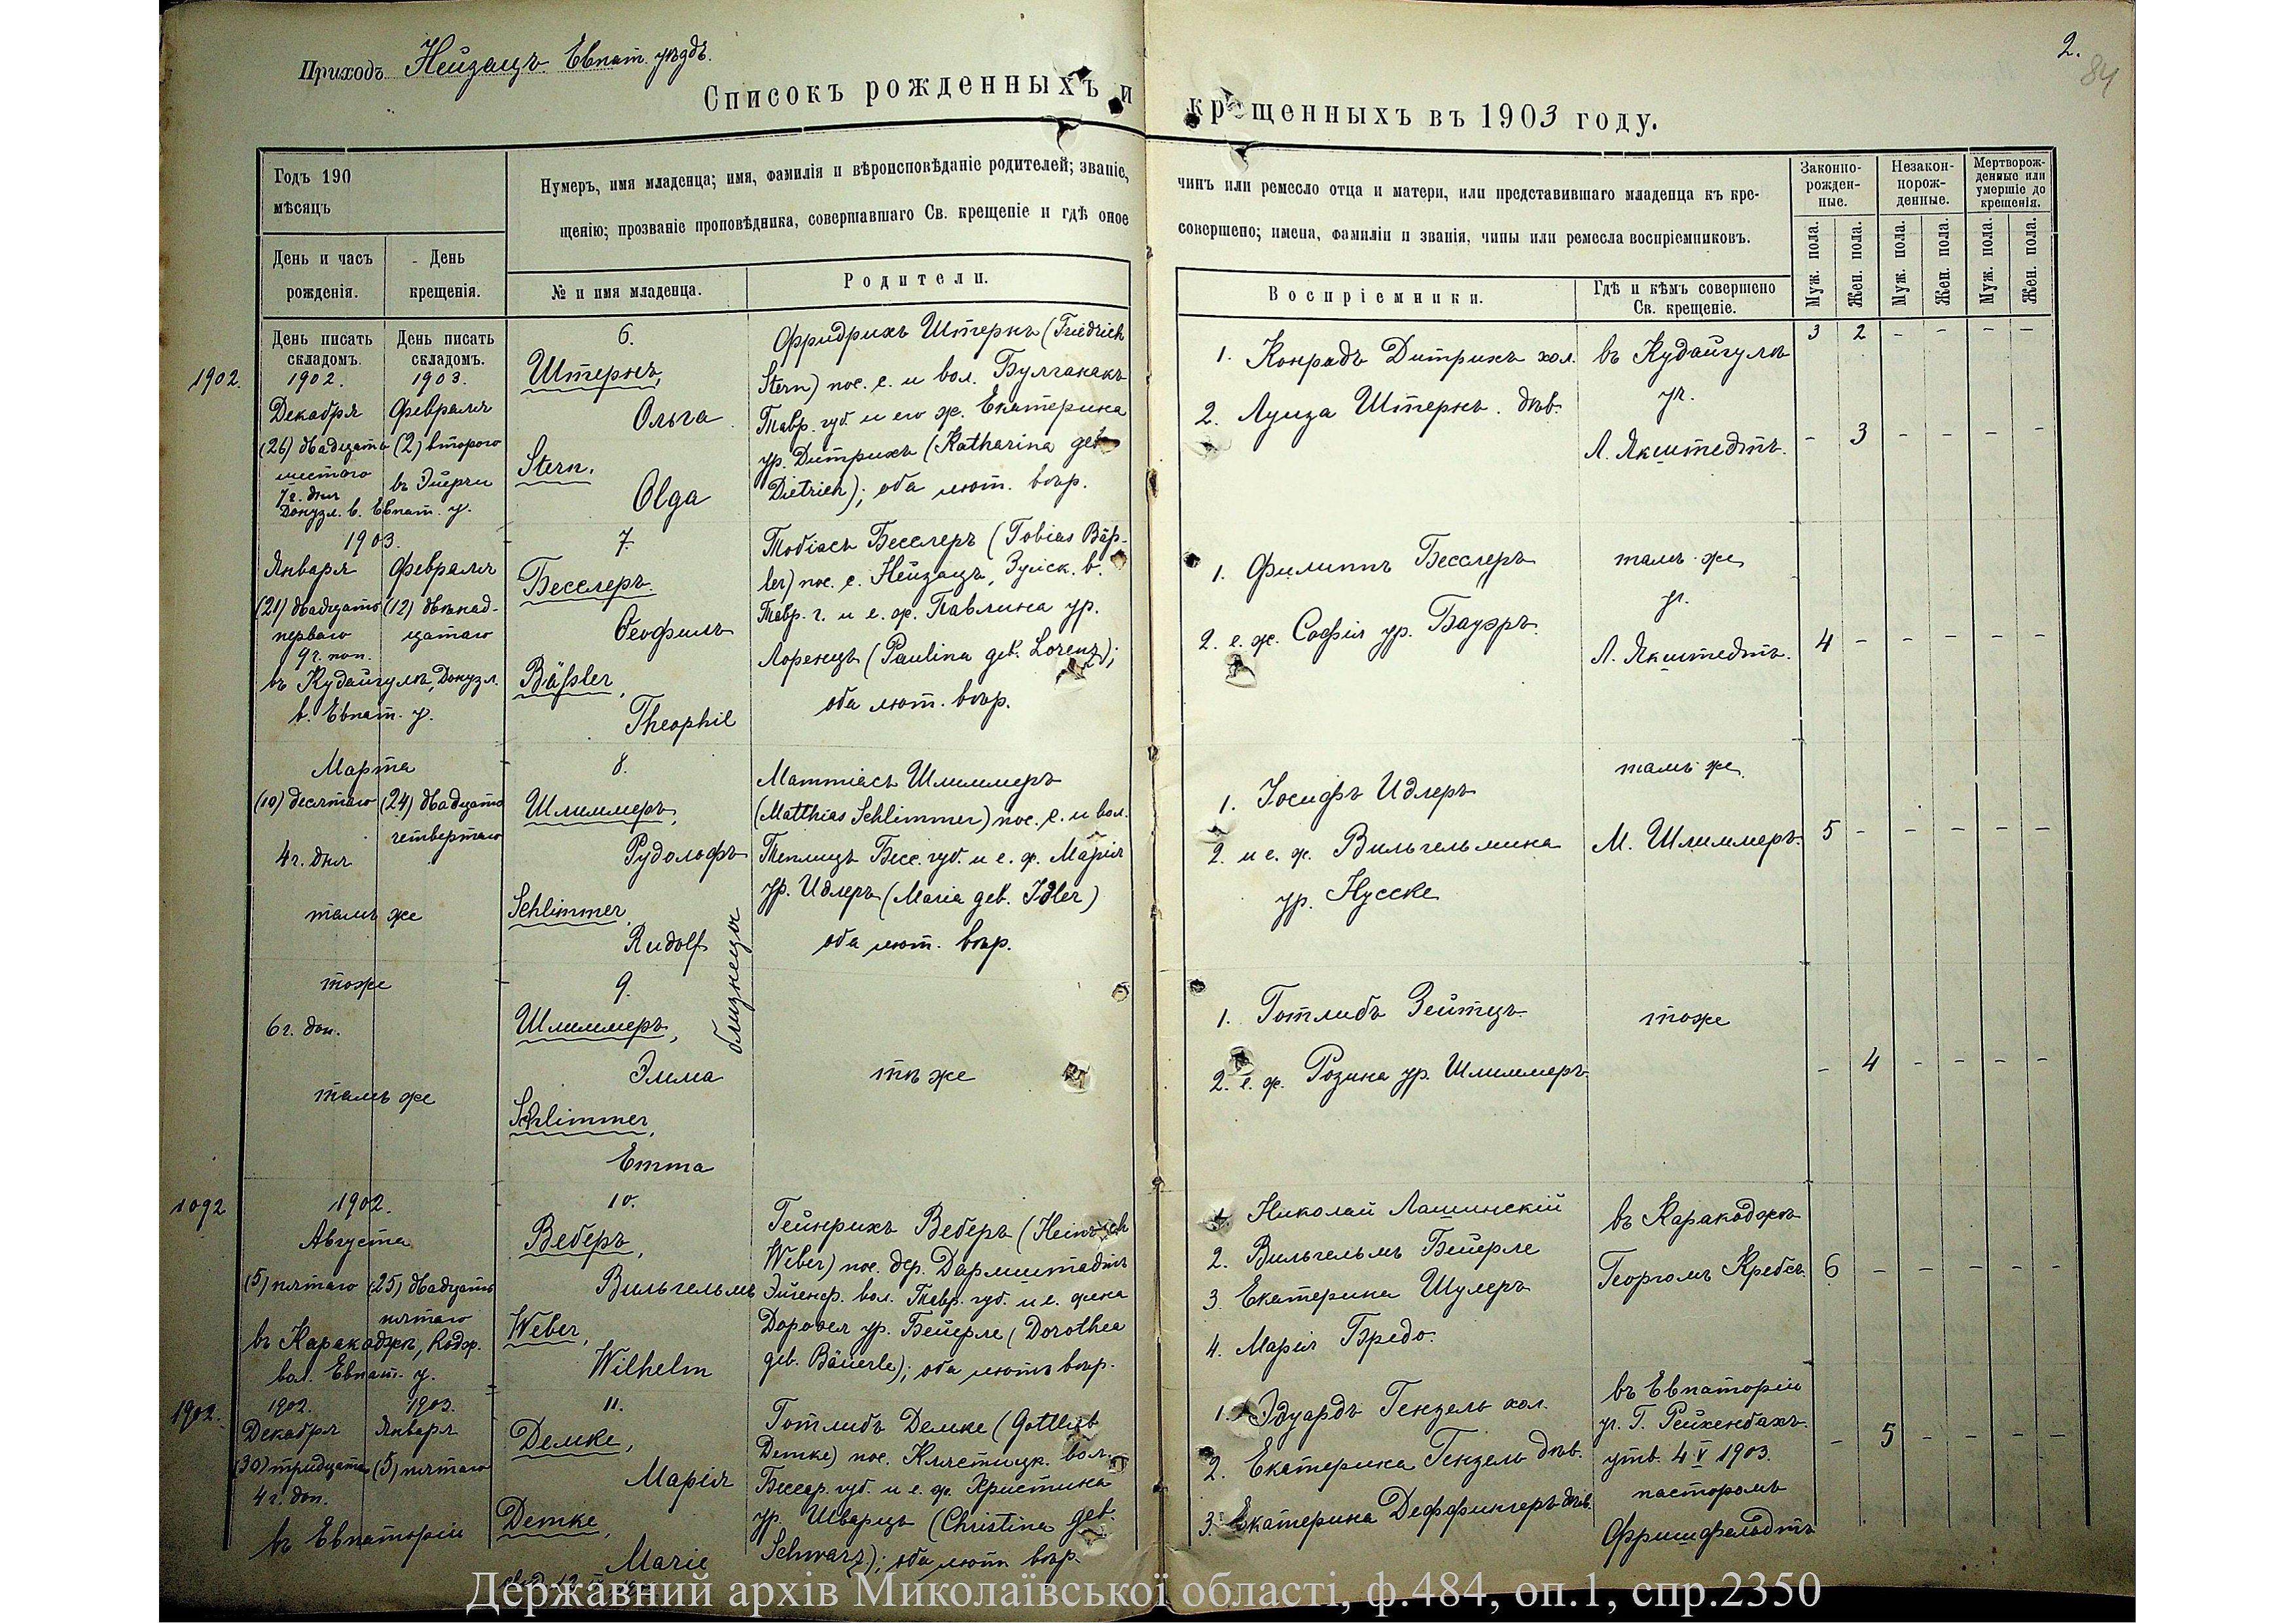 Приходъ Нейзацъ Евпат. уѣздъ.
2.
84
Списокъ рожденныхъ и крещенныхъ въ 1903 году.
Годъ 190
мѣсяцъ
День и часъ
рожденія.
День
крещенія.
Нумеръ, имя младенца; имя, фамилія и вѣроисповѣданіе родителей; званіе,
чинъ или ремесло отца и матери, или представившаго младенца къ кре-
щенію; прозваніе проповѣдника, совершавшаго Св. крещеніе и гдѣ оное
совершено; имена, фамиліи и званія, чины или ремесла воспріемниковъ.
№ и имя младенца.
Родители.
Воспріемники.
Гдѣ и кѣмъ совершено
Св. крещеніе.
Законно-
рожден-
ные.
Незакон-
норож-
денные.
Мертворож-
денные или
умершіе до
крещенія.
Муж. пола.
Жен. пола.
Муж. пола.
Жен. пола.
Муж. пола.
Жен. пола.
День писать
складомъ.
День писать
складомъ.
1902.
1902.
Декабря
(26) двадцать
шестого
7 ч. дня
1903.
Февраля
(2) второго
въ Эйерчи
Донузл. в. Евпат. у.
6.
Штернъ,
Ольга
Stern,
Olga
Фридрихъ Штернъ (Friedrich
Stern) пос. с. и вол. Булганакъ
Тавр. губ. и его ж. Екатерина
ур. Дитрихъ (Katharina geb.
Dietrich); оба лют. вѣр.
1. Конрадъ Дитрихъ хол.
2. Луиза Штернъ. дѣв.
въ Кудайгулѣ
уч.
Л. Якштедтъ.
3 2 - - - -
- 3 - - - -
1903.
Января
(21) двадцать
перваго
9 ч. поп.
Февраля
(12) двѣнад-
цатаго
въ Кудайгулѣ, Донузл.
в. Евпат. у.
7.
Бесслеръ.
Ѳеофилъ
Bäßler,
Theophil
Тобіасъ Бесслеръ (Tobias Bäß-
ler) пос. с. Нейзацъ, Зуйск. в.
Тавр. г. и е. ж. Павлина ур.
Лоренцъ (Paulina geb. Lorenz);
оба лют. вѣр.
1. Филиппъ Бесслеръ
2. е. ж. Софія ур. Бауэръ.
тамъ же
уч.
Л. Якштедтъ.
4 - - - - -
Марта
(10) десятаго
4 ч. дня
(24) двадцать
четвертаго
тамъ же
8.
Шлиммеръ,
Рудольфъ
Schlimmer,
Rudolf
близнецы
Маттіасъ Шлиммеръ
(Matthias Schlimmer) пос. с. и вол.
Теплицъ Бесс. губ. и е. ж. Марія
ур. Идлеръ (Maria geb. Idler)
оба лют. вѣр.
1. Іосифъ Идлеръ
2. и е. ж. Вильгельмина
ур. Нусске
тамъ же
М. Шлиммеръ.
5 - - - - -
тоже
6 ч. дня.
тамъ же
9.
Шлиммеръ,
Эмма
Schlimmer,
Emma
тѣ же
1. Готлибъ Зейтцъ
2. е. ж. Розина ур. Шлиммеръ
тоже
- 4 - - - -
1092
1902.
Августа
(5) пятаго
(25) двадцать
пятаго
въ Каракоджѣ, Кодж.
вол. Евпат. у.
10.
Веберъ,
Вильгельмъ
Weber,
Wilhelm
Гейнрихъ Веберъ (Heinrich
Weber) пос. дер. Дармштадтъ
Эйгенф. вол. Тавр. губ. и е. жена
Доровея ур. Бейерле (Dorothea
geb. Bäuerle); оба лютъ вѣр.
1. Николай Лашинскій
2. Вильгельмъ Бейерле
3. Екатерина Шулеръ
4. Марія Бредо.
въ Каракоджѣ
Георгомъ Кребсъ.
6 - - - - -
1902.
1902.
Декабря
(30) тридцать
4 ч. дня.
1903.
Января
(5) пятаго
въ Евпаторіи
11.
Демке,
Марія
Demke,
Marie
Готлибъ Демке (Gottlieb
Demke) пос. Клястицк. вол.
Бессар. губ. и е. ж. Христина
ур. Шварцъ (Christina geb.
Schwarz); оба лют. вѣр.
1. Эдуардъ Гензель хол.
2. Екатерина Гензель дѣв.
3. Екатерина Деффингеръ дѣв.
въ Евпаторіи
уч. Г. Рейхенбахъ
утв. 4 V 1903.
пасторомъ
Фришфельдтъ
- 5 - - - -
Державний архів Миколаївської області, ф.484, оп.1, спр.2350